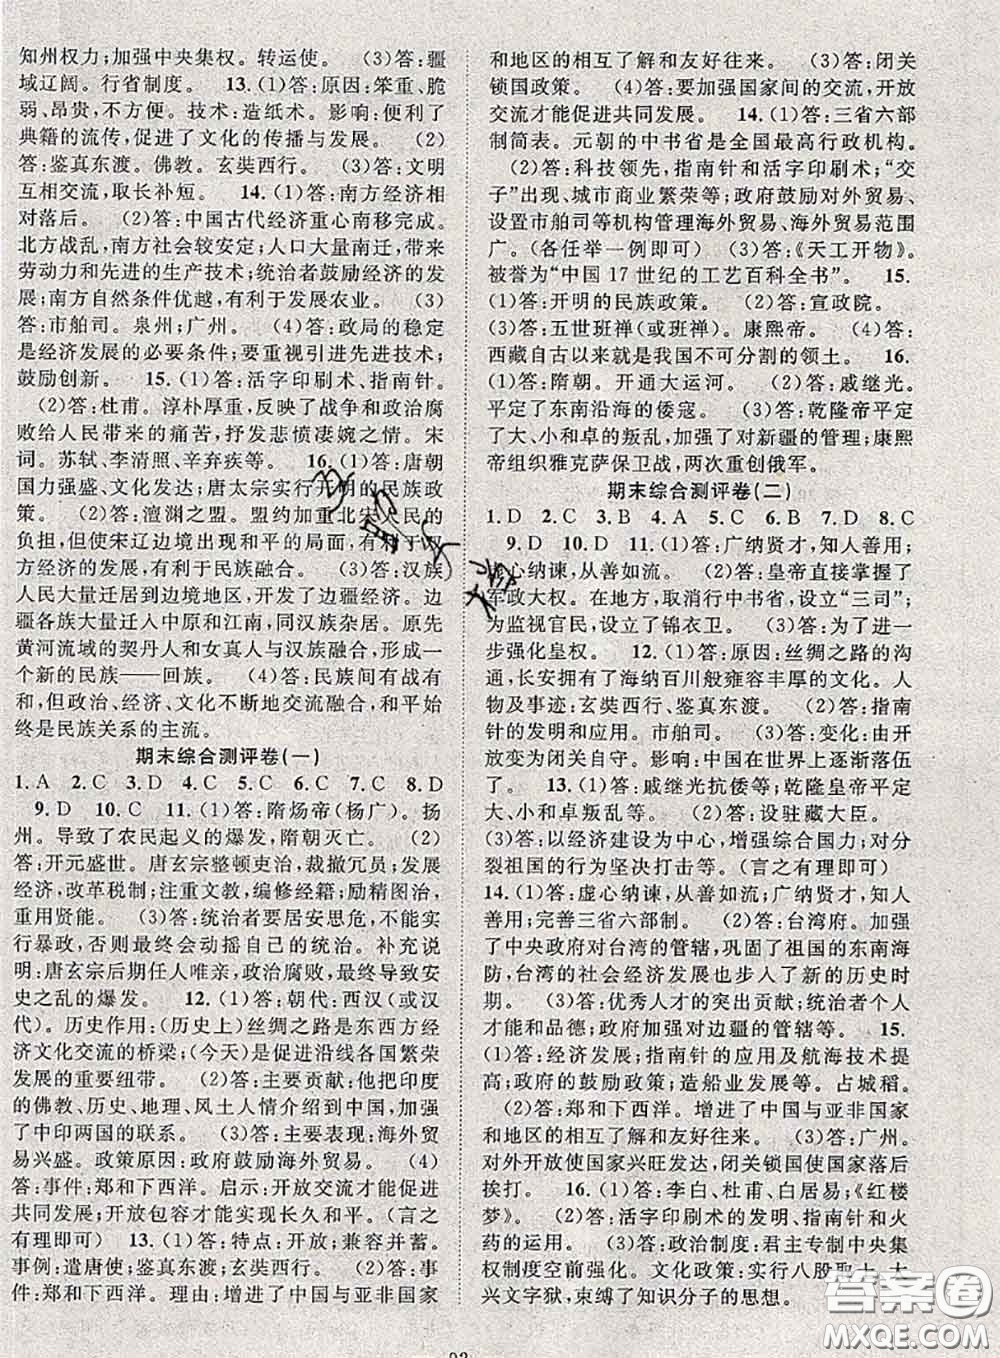 知州权力;加强中央集权。转运使。 (3)答:疆
域辽阔。行省制度。 13.(1)答:原因:笨重、脆
弱、昂贵,不方便。技术:造纸术。影响:便利了
典籍的流传,促进了文化的传播与发展。 (2)
答:鉴真东渡。佛教。玄奘西行。 (3)答:文明
互相交流,取长补短。 14.(1)答:南方经济相
对落后。 (2)答:中国古代经济重心南移完成。
北方战乱,南方社会较安定;人口大量南迁,带来
劳动力和先进的生产技术;统治者鼓励经济的发
展;南方自然条件优越,有利于发展农业。 (3)
答:市舶司。泉州;广州。 (4)答:政局的稳定
是经济发展的必要条件;要重视引进先进技术;
鼓励创新。 15.(1)答:活字印刷术、指南针。
(2)答:杜甫。淳朴厚重,反映了战争和政治腐
败给人民带来的痛苦,抒发悲愤凄婉之情。宋
词。苏轼、李清照、辛弃疾等。 16.(1)答:唐朝
国力强盛、文化发达;唐太宗实行开明的民族政
策。 (2)答:澶渊之盟。盟约加重北宋人民的
负担,但使宋辽边境出现和平的局面,有利于双
方经济的发展,有利于民族融合。 (3)答:汉族
人民大量迁移到边境地区,开发边疆经济。边
疆各族大量迁入中原和江南,同汉族杂居。原先
黄河流域的契丹人和女真人与汉族融合,形成
一个新的民族——回族。 (4)答:民族间有战有
和,但政治、经济、文化不断地交流融合,和平始
终是民族关系的主流。
期末综合测评卷(一)
1.A 2.C 3.D 4.C 5.C 6.C 7.C 8.D
9.D 10.C 11.(1)答:隋炀帝(杨广)。扬
州。导致了农民起义的爆发,隋朝灭亡。 (2)
答:开元盛世。唐玄宗整顿吏治,裁撤冗员;发展
经济,改革税制;注重文教,编修经籍;励精图治,
重用贤能。 (3)答:统治者要居安思危,不能实
行暴政,否则最终会动摇自己的统治。补充说
明:唐玄宗后期任人唯亲,政治腐败,最终导致安
史之乱的爆发。 12.(1)答:朝代:西汉(或汉
代)。历史作用:(历史上)丝绸之路是东西方经
济文化交流的桥梁;(今天)是促进沿线各国繁荣
发展的重要纽带。 (2)答:主要贡献:他把印度
的佛教、历史、地理、风土人情介绍到中国,加强
了中印两国的联系。 (3)答:主要表现:海外贸
易兴盛。政策原因:政府鼓励海外贸易。 (4)
答:事件:郑和下西洋。启示:开放交流才能促进
共同发展;开放包容才能实现长久和平。(言之
有理即可) 13.(1)答:特点:开放;兼容并蓄。
事例:遣唐使;鉴真东渡;玄奘西行。 (2)答:事
件:郑和下西洋。理由:增进了中国与亚非国家
和地区的相互了解和友好往来。 (3)答:闭关
锁国政策。 (4)答:要加强国家间的交流,开放
交流才能促进共同发展。 14.(1)答:三省六部
制简表。元朝的中书省是全国最高行政机构。
(2)答:科技领先,指南针和活字印刷术;“交
子”出现、城市商业繁荣等;政府鼓励对外贸易、
设置市舶司等机构管理海外贸易、海外贸易范围
广。(各任举一例即可) (3)答:《天工开物》。
被誉为“中国17世纪的工艺百科全书”。 15.
(1)答:开明的民族政策。 (2)答:宣政院。
(3)答:五世班禅(或班禅)。康熙帝。 (4)答:
西藏自古以来就是我国不可分割的领土。 16.
(1)答:隋朝。开通大运河。 (2)答:戚继光。
平定了东南沿海的倭寇。 (3)答:乾隆帝平定
了大、小和卓的叛乱,加强了对新疆的管理;康熙
帝组织雅克萨保卫战,两次重创俄军。
期末综合测评卷(二)
1.D 2.C 3.C 4.D 5.C 6.B 7.D 8.C
9.D 10.D 11.(1)答:广纳贤才,知人善用;
虚心纳谏,从善如流。 (2)答:皇帝直接掌握了
军政大权。在地方,取消行中书省,设立“三司”;
为监视官民,设立了锦衣卫。 (3)答:为了进一
步强化皇权。 12.(1)答:原因:丝绸之路的沟
通,长安拥有了海纳百川般雍容丰厚的文化。人
物及事迹:玄奘西行、鉴真东渡。 (2)答:指南
针的发明和应用。市舶司。 (3)答:变化:由开
放变为关闭。影响:中国在世界上逐渐落伍
了。 13.(1)答:戚继光抗倭等;乾隆皇帝平定
大、小和卓叛乱等。 (2)答:设驻藏大臣。
(3)答:以经济建设为中心,增强综合国力;对分
裂祖国的行为坚决打击等。(言之有理即可)
14.(1)答:虚心纳谏,从善如流;广纳贤才,知人
善用;完善三省六部制。 (2)答:台湾府。加强
了中央政府对台湾的管辖,巩固了祖国的东南海
防,台湾的社会经济发展也步入了新的历史时
期。 (3)答:优秀人才的突出贡献;统治者个人
才能和品德;政府加强对边疆的管辖等。 15.
(1)答:经济发展;指南针的应用及航海技术提
高;政府的鼓励政策;造船业发展等。占城稻。
(2)答:郑和下西洋。增进了中国与亚非国家
和地区的相互了解和友好往来。 (3)答:广州。
对外开放使国家兴旺发达,闭关锁国使国家落后
挨打。 16.(1)答:李白、杜甫、白居易;《红楼
梦》。 (2)答:活字印刷术的发明、指南针和火
药的运用。 (3)答:政治制度:君主专制中央集
权制度空前强化。文化政策:实行八股取士,大
兴文字狱,束缚了知识分子的思想。
答案圈
MXQE.COM